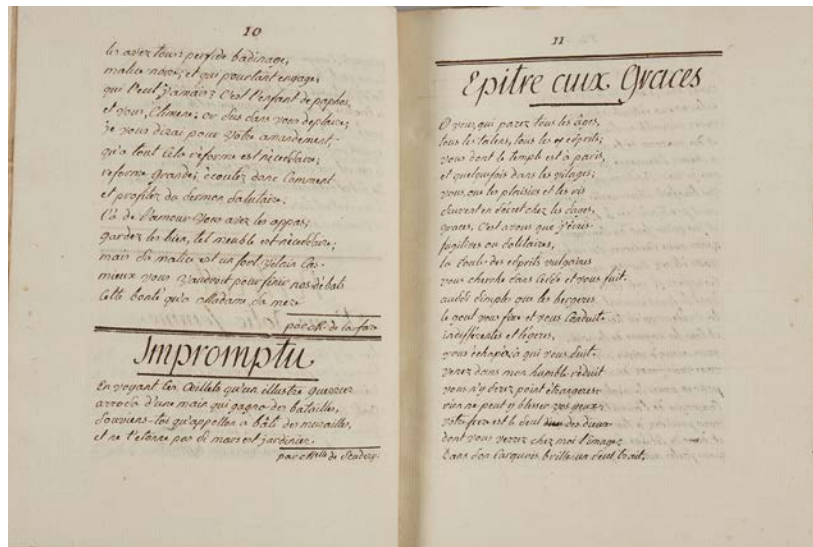 10
les avez tous; perfide badinage,
malice noire; et qui pourtant engage;
qui l'eut jamais? C'est l'enfant de paphos,
et vous, Climene; or sus sans vous deplaire;
je vous dirai pour votre amandement,
qu'a tout cela réforme est nécessaire;
réforme grande; écoutez donc Comment
et profitez du sermon salutaire.
Ca de l'amour vous avez les appas;
gardez les bien, tel meuble est nécessaire;
mais sa malice est un fort vilain Cas.
mieux vous vaudroit pour finir nos débats
Cette bonté qu'a Madame sa mere
par Mr. de la fare
Impromptu
En voyant ces Œillets qu'un illustre guerrier
arrosa d'une main qui gagna des batailles,
Souviens-toi qu'appollon a bâti des murailles,
et ne t'etonne pas si mars est jardinier.
par Melle de Scudery.
11
Epitre aux Graces
O vous, qui parez tous les âges,
tous les talens, tous les esprits;
vous dont le temple est à paris,
et quelquefois dans les vilages;
vous, que les plaisirs et les ris
suivent en secret chez les sages,
graces, C'est a vous que j'écris.
fugitives ou solitaires,
la foule des esprits vulgaires
vous cherche sans Cesse et vous fuit.
aussi simples que les bergeres
le gout vous fixe et vous Conduit.
indifférentes et légeres,
vous échapez a qui vous suit.
venez dans mon humble réduit
vous n'y serez point étrangeres.
rien ne peut y blesser vos yeux.
votre frere est le seul des dieux
dont vous verrez chez moi l'image;
Dans son Carquois brille un seul trait.